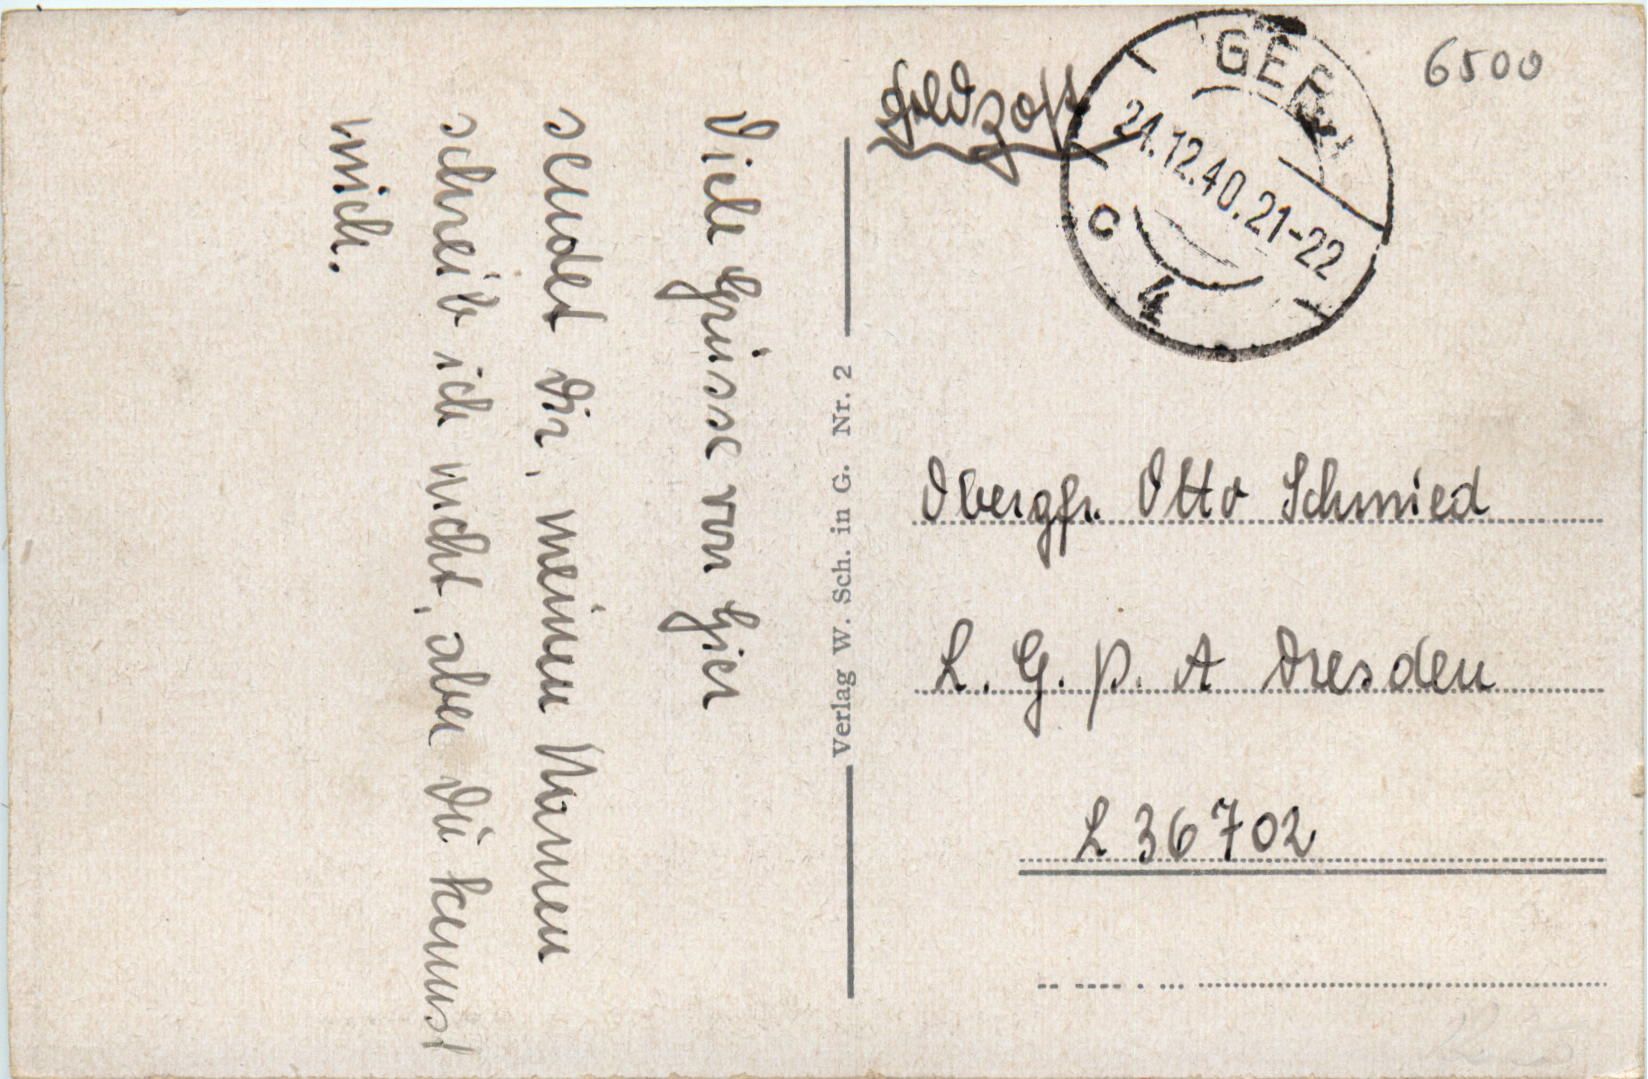 Viele Grüsse von hier
sendet dir, meinen Namen
schreib ich nicht, aber du kennst
mich.
Verlag W. Sch. in G. Nr. 2
Feldpost
GERA
21.12.40.21-22
c
4
6500
Obergfr. Otto Schmied
L. G. P. A Dresden
L 36702